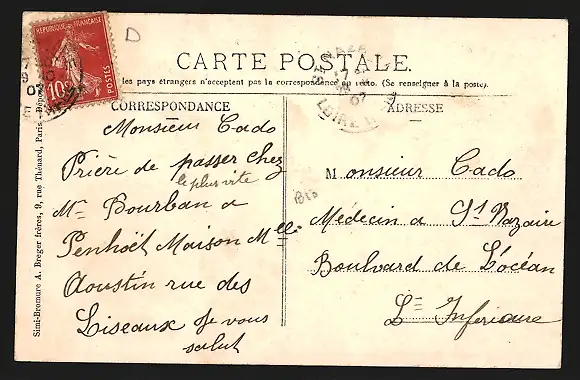 REPUBLIQUE FRANÇAISE
10c
POSTES
D
CARTE POSTALE.
les pays étrangers n'acceptent pas la correspondance au recto. (Se renseigner à la poste).
CORRESPONDANCE
Monsieur Cado
Prière de passer chez
le plus vite
Mr Bourban a
Penhoët Maison Melle
Aoustin rue des
Liseaux Je vous
salut
ADRESSE
Monsieur Cado
Médecin a St Nazaire
Boulvard de L'océan
L= Inferieure
Simi-Bromure A. Breger frères, 9, rue Thénard, Paris.
ST NAZAIRE
07
LOIRE